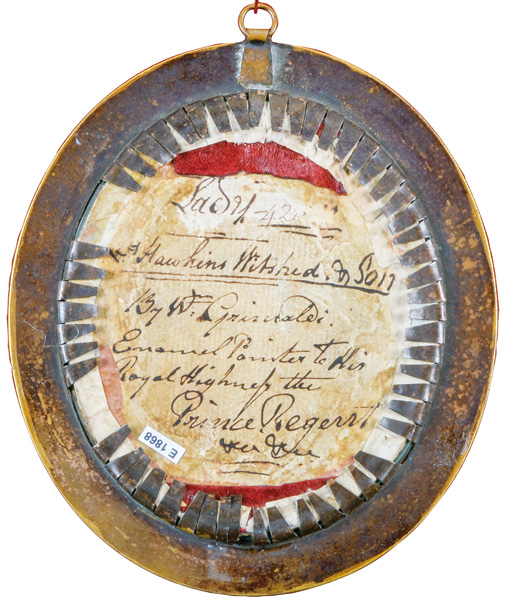 Lady 42
Hawkins Witshed & Son
By Wm Grimaldi.
Enamel Painter to His
Royal Highness the
Prince Regent
&c &c
E 1868